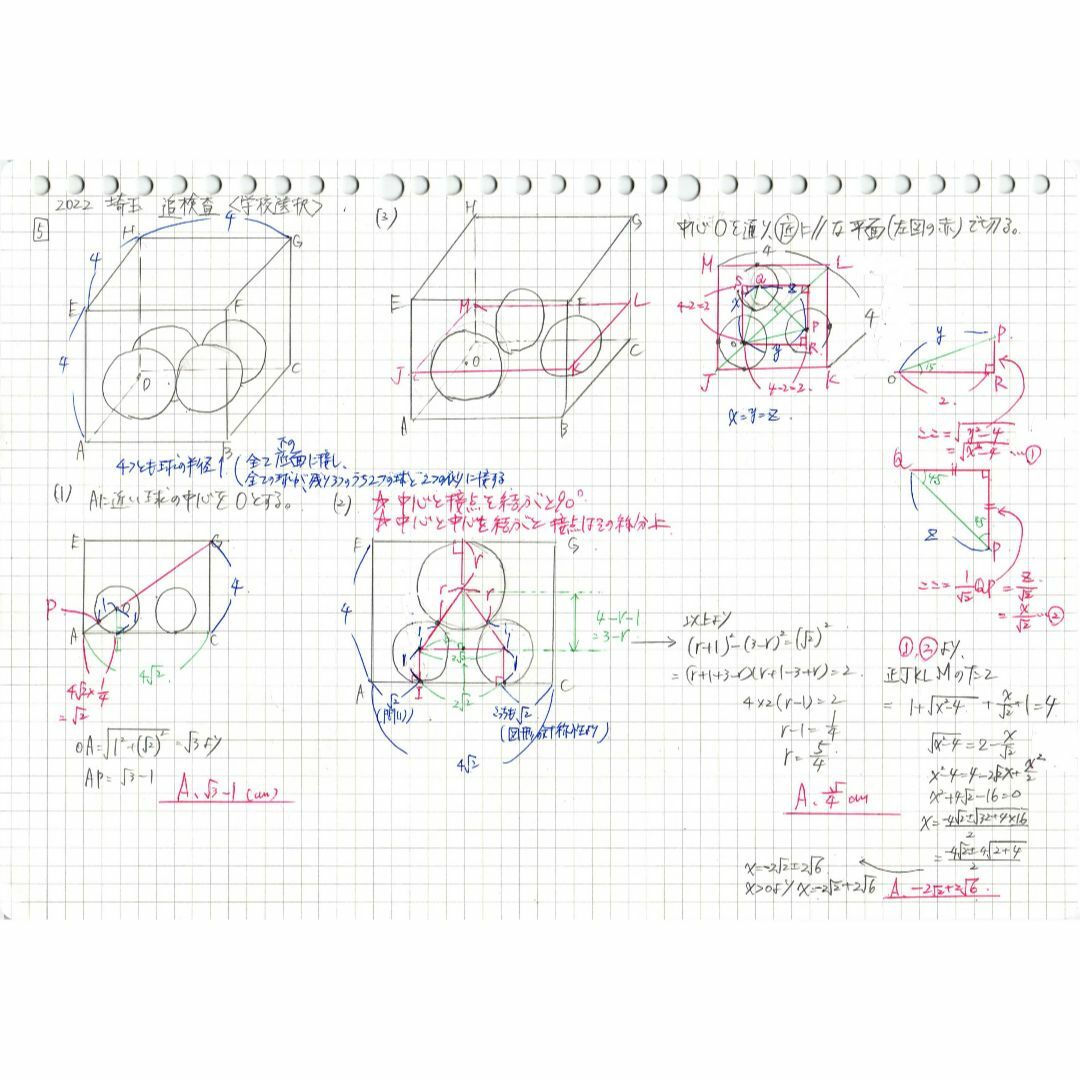 2022 埼玉 追検査〈学校選択〉
5
H
G
E
F
O
C
A
B
4
4
4
4つとも球の半径1(全て下の底面に接し、
全ての球が、残り3つのうち2つの球と2つの側面に接する
(1) Aに近い球の中心をOとする。
E
G
P
A
C
4
4√2
4√2×1/4
=√2
OA=√(1²+(√2)²)=√3より
AP=√3-1
A、√3-1(cm)
(2) ☆中心と接点を結ぶと90°
☆中心と中心を結ぶと接点はその線分上
E
G
4
r
r
r
1
1
4-r-1
=3-r
2√2
A
I
C
√2
2√2
こっちも√2
(図形の対称性より)
4√2
以上より
(r+1)²-(3-r)²=(√2)²
=(r+1+3-r)(r+1-3+r)=2
4×2(r-1)=2
r-1=1/4
r=5/4
(3)
H
G
E
F
M
L
O
C
J
K
A
B
中心Oを通り、底に//な平面(左図の赤)で切る。
4
M
L
S
Q
z
4-2=2
x
P
4
O
y
R
J
K
4-2=2
x=y=z
y
P
O
15
2
R
ここ=√(y²-4)
=√(x²-4)…①
Q
45
z
45
P
ここ=1/√2 QP=z/√2
=x/√2…②
①,②より、
正JKLMのたて
=1+√(x²-4)+x/√2+1=4
√(x²-4)=2-x/√2
x²-4=4-2√2x+x²/2
x²+4√2-16=0
x=(-4√2±√(32+4×16))/2
=(-4√2±4√(2+4))/2
x=-2√2±2√6
x>0より x=-2√2+2√6
A、-2√2+2√6